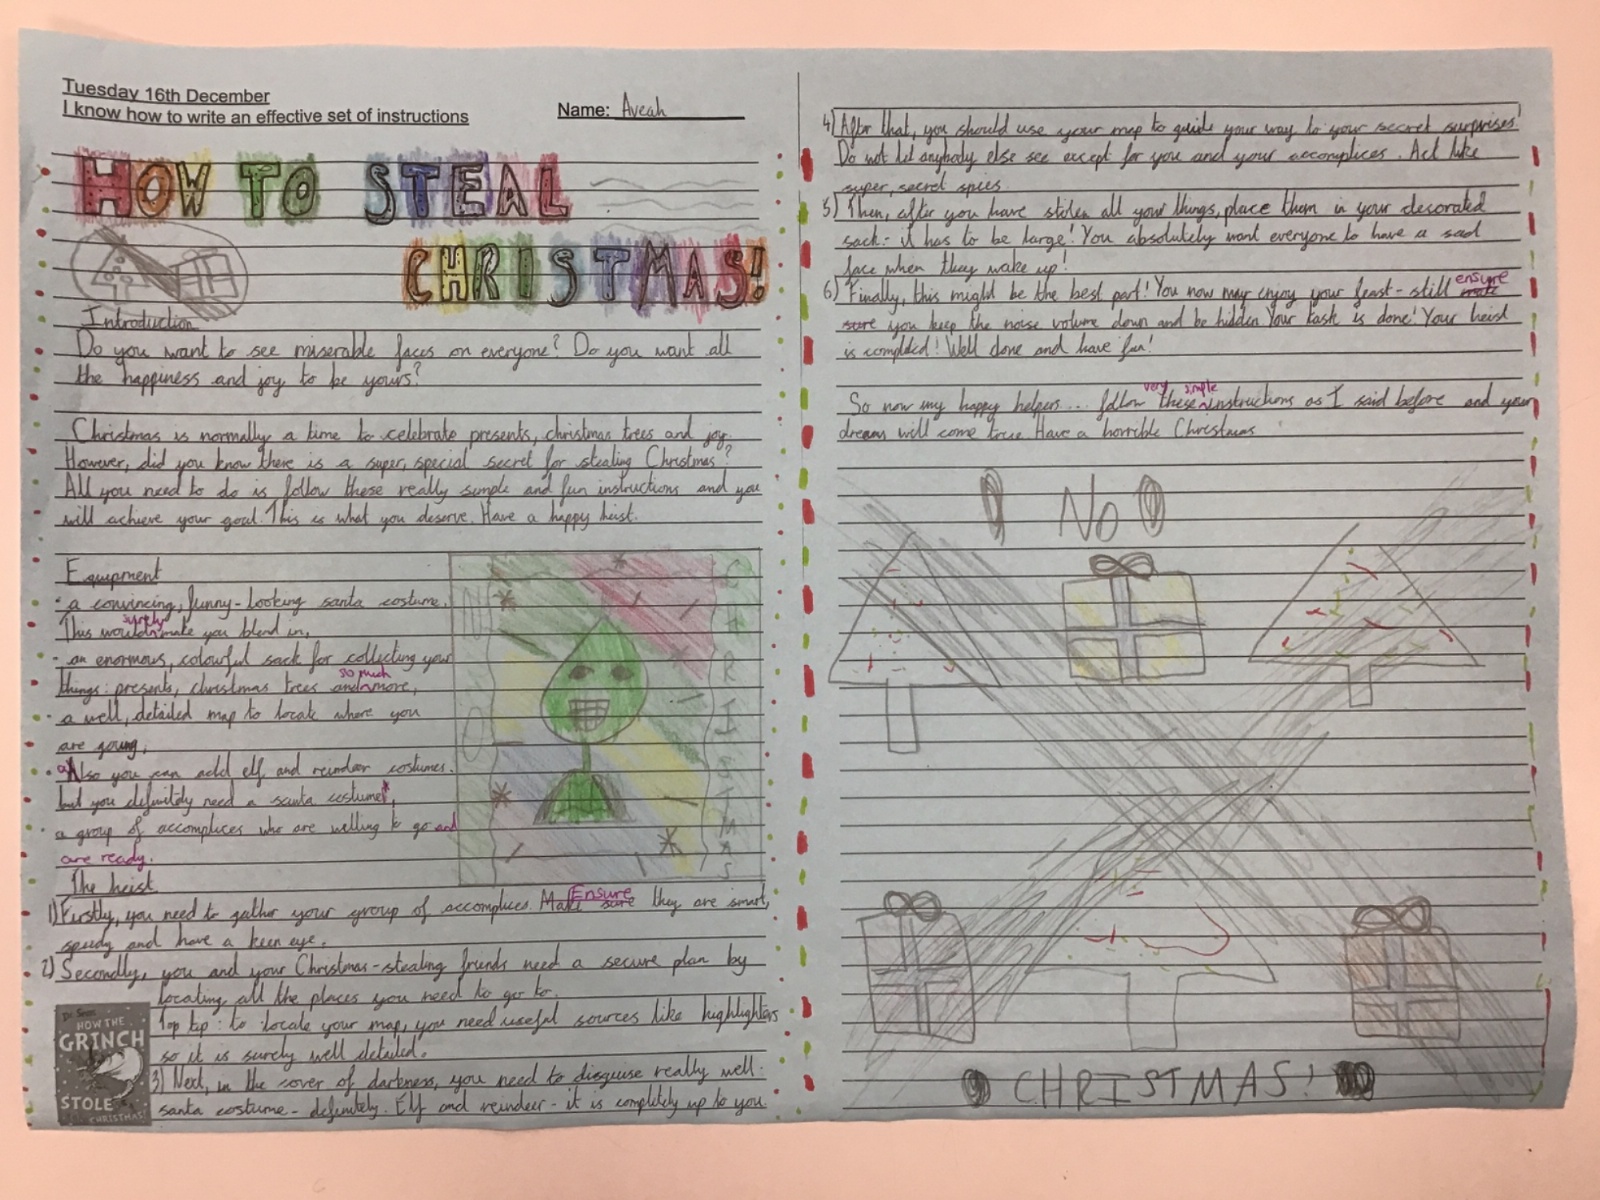 Tuesday 16th December
I know how to write an effective set of instructions
Name: Aveah
HOW TO STEAL
CHRISTMAS!
Introduction
Do you want to see miserable faces on everyone? Do you want all
the happiness and joy to be yours?
Christmas is normally a time to celebrate presents, christmas trees and joy.
However, did you know there is a super, special secret for stealing Christmas?
All you need to do is follow these really simple and fun instructions and you
will achieve your goal. This is what you deserve. Have a happy heist.
Equipment
· a convincing, funny-looking santa costume.
This would surely make you blend in,
· an enormous, colourful sack for collecting your
things: presents, christmas trees and so much more,
· a well, detailed map to locate where you
are going,
· also you can add elf and reindeer costumes.
but you definitely need a santa costume,
· a group of accomplices who are willing to go and
are ready.
The heist
1) Firstly, you need to gather your group of accomplices. Make sure Ensure they are smart,
speedy and have a keen eye.
2) Secondly, you and your Christmas-stealing friends need a secure plan by
locating all the places you need to go to.
Top tip: to locate your map, you need useful sources like highlighters
so it is surely well detailed.
3) Next, in the cover of darkness, you need to disguise really well:
santa costume - definitely. Elf and reindeer - it is completely up to you.
Dr. Seuss
HOW THE
GRINCH
STOLE
CHRISTMAS!
NO
CHRISTMAS
4) After that, you should use your map to guide your way to your secret surprises!
Do not let anybody else see except for you and your accomplices. Act like
super, secret spies.
5) Then, after you have stolen all your things, place them in your decorated
sack - it has to be large! You absolutely want everyone to have a sad
face when they wake up!
6) Finally, this might be the best part! You now may enjoy your feast - still make ensure
sure you keep the noise volume down and be hidden. Your task is done! Your heist
is completed! Well done and have fun!
So now my happy helpers... follow these very simple instructions as I said before and your
dreams will come true. Have a horrible Christmas
No
CHRISTMAS!